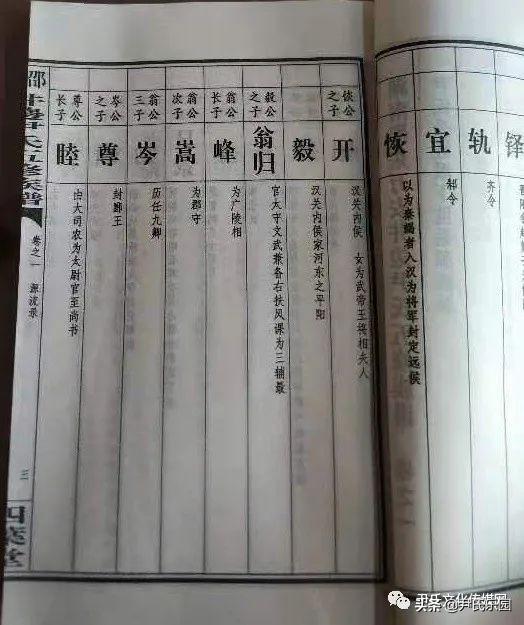 铎
轨
齐令
宜
郝令
恢
以为秦謁者入汉为将军封定远侯
恢公
之子
开
汉关内侯 女为武帝王将相夫人
毅
汉关内侯家河东之平阳
毅公
之子
翁归
官太守文武兼备右扶风课为三辅最
翁公
长子
峰
为广陵相
翁公
次子
嵩
为郡守
翁公
三子
岑
历任九卿
岑公
之子
尊
封鄞王
尊公
长子
睦
由大司农为太尉官至尚书
氏五修族谱
卷之一 源流录
三
堂
尹氏文化传媒网
头条@尹氏乐园